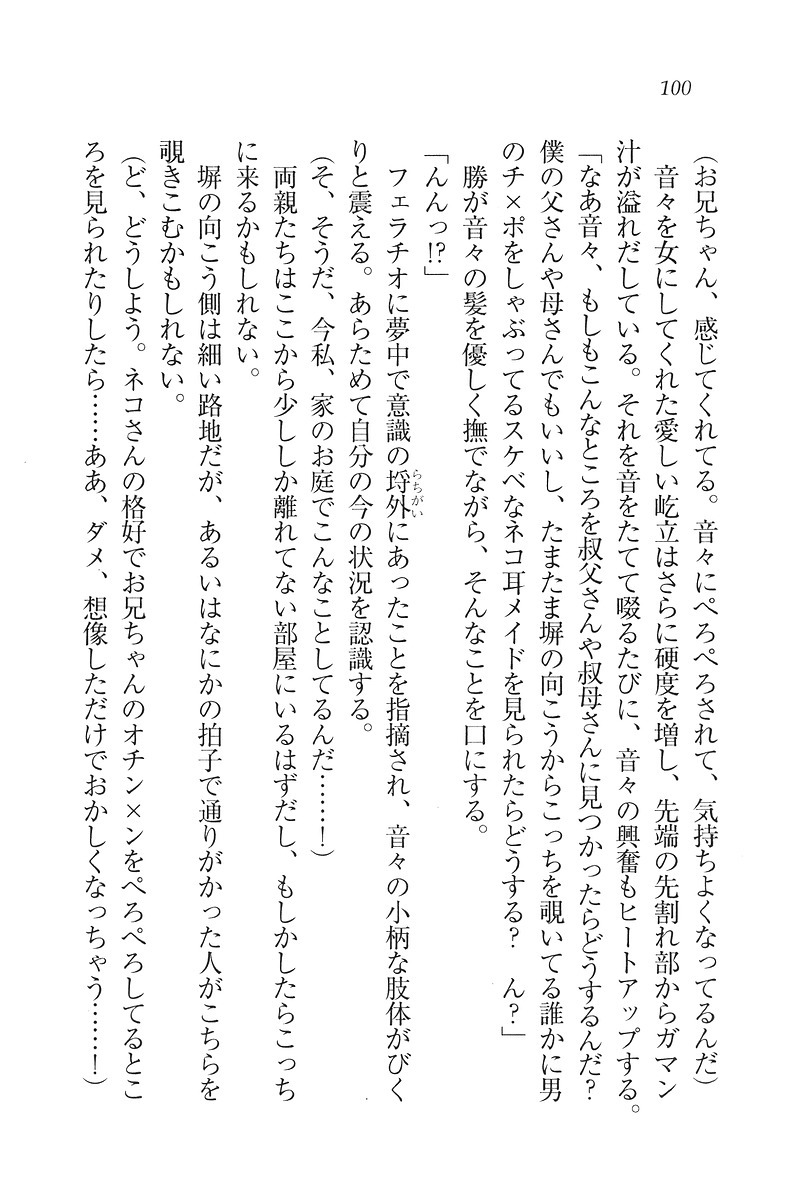 100
(お兄ちゃん、感じてくれてる。音々にぺろぺろされて、気持ちよくなってるんだ)
音々を女にしてくれた愛しい屹立はさらに硬度を増し、先端の先割れ部からガマン
汁が溢れだしている。それを音をたてて啜るたびに、音々の興奮もヒートアップする。
「なあ音々、もしもこんなところを叔父さんや叔母さんに見つかったらどうするんだ?
僕の父さんや母さんでもいいし、たまたま塀の向こうからこっちを覗いてる誰かに男
のチ×ポをしゃぶってるスケベなネコ耳メイドを見られたらどうする? ん?」
勝が音々の髪を優しく撫でながら、そんなことを口にする。
「んんっ!?」
フェラチオに夢中で意識の埒外らちがいにあったことを指摘され、音々の小柄な肢体がびく
りと震える。あらためて自分の今の状況を認識する。
(そ、そうだ、今私、家のお庭でこんなことしてるんだ……!)
両親たちはここから少ししか離れてない部屋にいるはずだし、もしかしたらこっち
に来るかもしれない。
塀の向こう側は細い路地だが、あるいはなにかの拍子で通りがかった人がこちらを
覗きこむかもしれない。
(ど、どうしよう。ネコさんの格好でお兄ちゃんのオチン×ンをぺろぺろしてるとこ
ろを見られたりしたら……ああ、ダメ、想像しただけでおかしくなっちゃう……!)